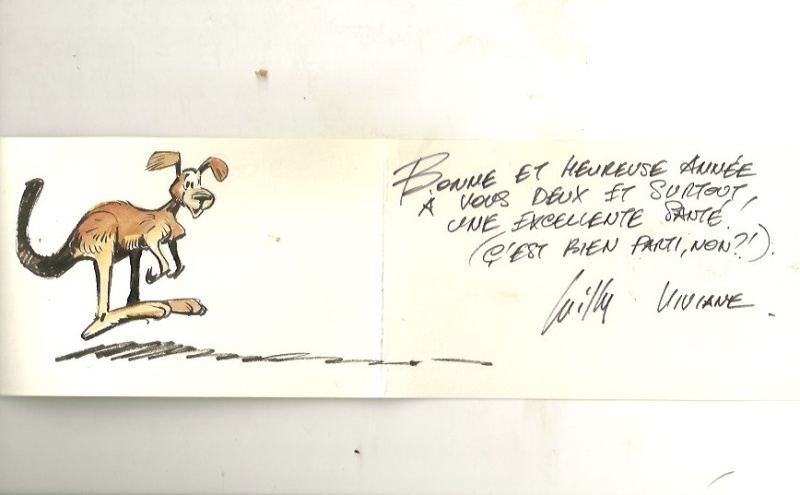 BONNE ET HEUREUSE ANNÉE
À VOUS DEUX ET SURTOUT,
UNE EXCELLENTE SANTÉ.
(Ç'EST BIEN PARTI, NON?!).
Willy VIVIANE.